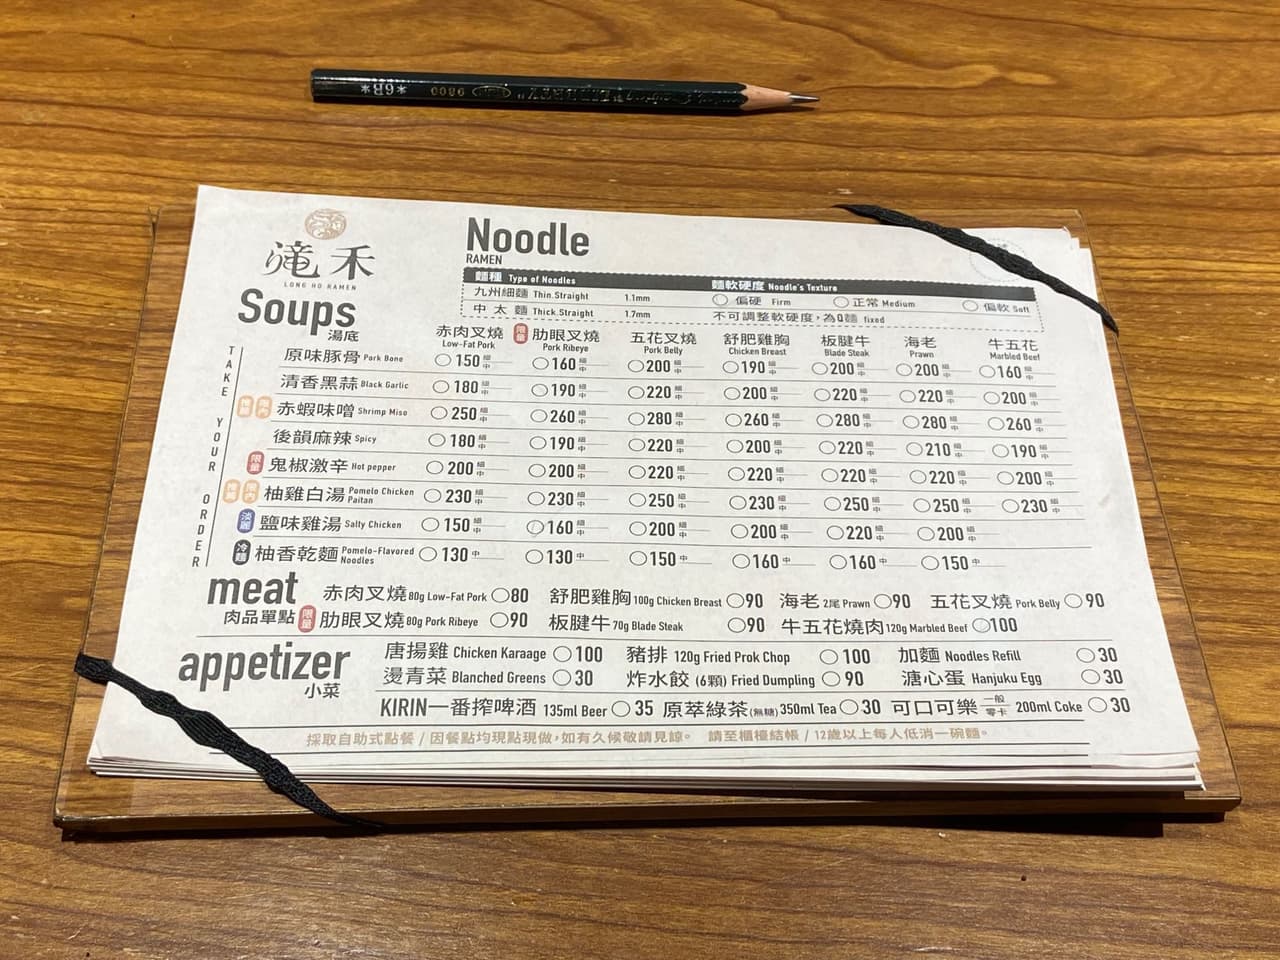 *6B* 9800
滝禾
LONG HO RAMEN
Noodle
RAMEN
麵種 Type of Noodles 麵軟硬度 Noodle's Texture
九州細麵 Thin.Straight 1.1mm 偏硬 Firm 正常 Medium 偏軟 Soft
中太麵 Thick.Straight 1.7mm 不可調整軟硬度,為Q麵 fixed
Soups
湯底
TAKE YOUR ORDER
赤肉叉燒 限量 肋眼叉燒 五花叉燒 舒肥雞胸 板腱牛 海老 牛五花
Low-Fat Pork Pork Ribeye Pork Belly Chicken Breast Blade Steak Prawn Marbled Beef
原味豚骨 Pork Bone 150 細中 160 細中 200 細中 190 細中 200 細中 200 細中 160 細中
清香黑蒜 Black Garlic 180 細中 190 細中 220 細中 200 細中 220 細中 220 細中 200 細中
赤蝦味噌 Shrimp Miso 250 細中 260 細中 280 細中 260 細中 280 細中 280 細中 260 細中
後韻麻辣 Spicy 180 細中 190 細中 220 細中 200 細中 220 細中 210 細中 190 細中
限量 鬼椒激辛 Hot pepper 200 細中 200 細中 220 細中 220 細中 220 細中 220 細中 200 細中
柚雞白湯 Pomelo Chicken Paitan 230 細中 230 細中 250 細中 230 細中 250 細中 250 細中 230 細中
淡麗 鹽味雞湯 Salty Chicken 150 細中 160 細中 200 細中 200 細中 220 細中 200 細中
冷麵 柚香乾麵 Pomelo-Flavored Noodles 130 中 130 中 150 中 160 中 160 中 150 中
meat
肉品單點
赤肉叉燒 80g Low-Fat Pork 80 舒肥雞胸 100g Chicken Breast 90 海老 2尾 Prawn 90 五花叉燒 Pork Belly 90
限量 肋眼叉燒 80g Pork Ribeye 90 板腱牛 70g Blade Steak 90 牛五花燒肉 120g Marbled Beef 100
appetizer
小菜
唐揚雞 Chicken Karaage 100 豬排 120g Fried Prok Chop 100 加麵 Noodles Refill 30
燙青菜 Blanched Greens 30 炸水餃 (6顆) Fried Dumpling 90 溏心蛋 Hanjuku Egg 30
KIRIN一番搾啤酒 135ml Beer 35 原萃綠茶(無糖) 350ml Tea 30 可口可樂 一般 零卡 200ml Coke 30
採取自助式點餐 / 因餐點均現點現做,如有久候敬請見諒。 請至櫃檯結帳 / 12歲以上每人低消一碗麵。